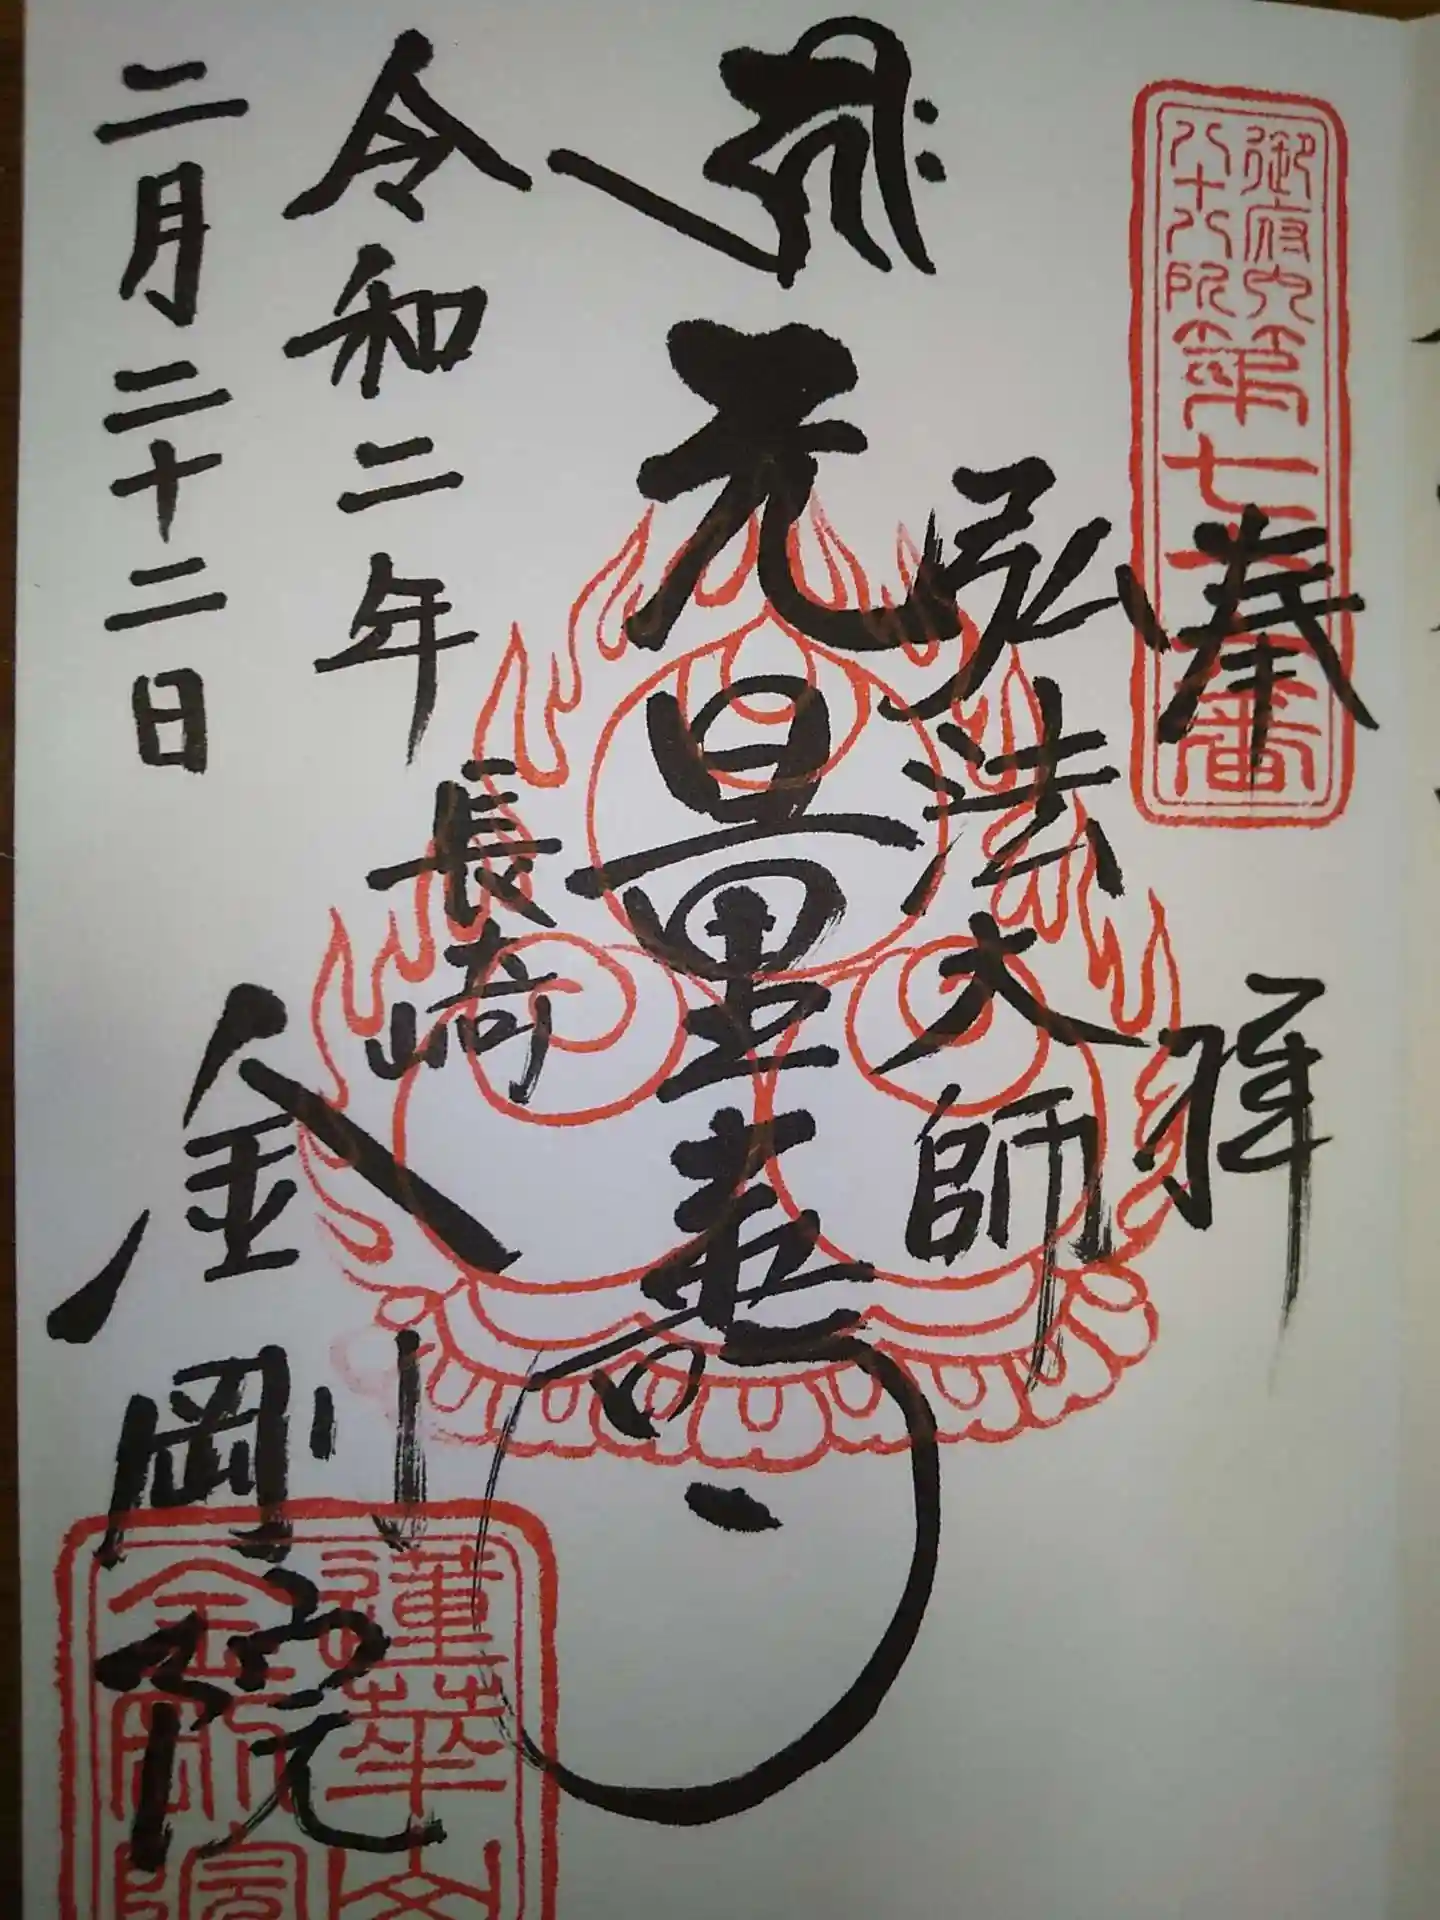 奉拝
御府内
八十八所
第七
番
弘法大師
无量壽
令和二年
二月二十二日
長崎
金剛院
蓮華山
金剛院